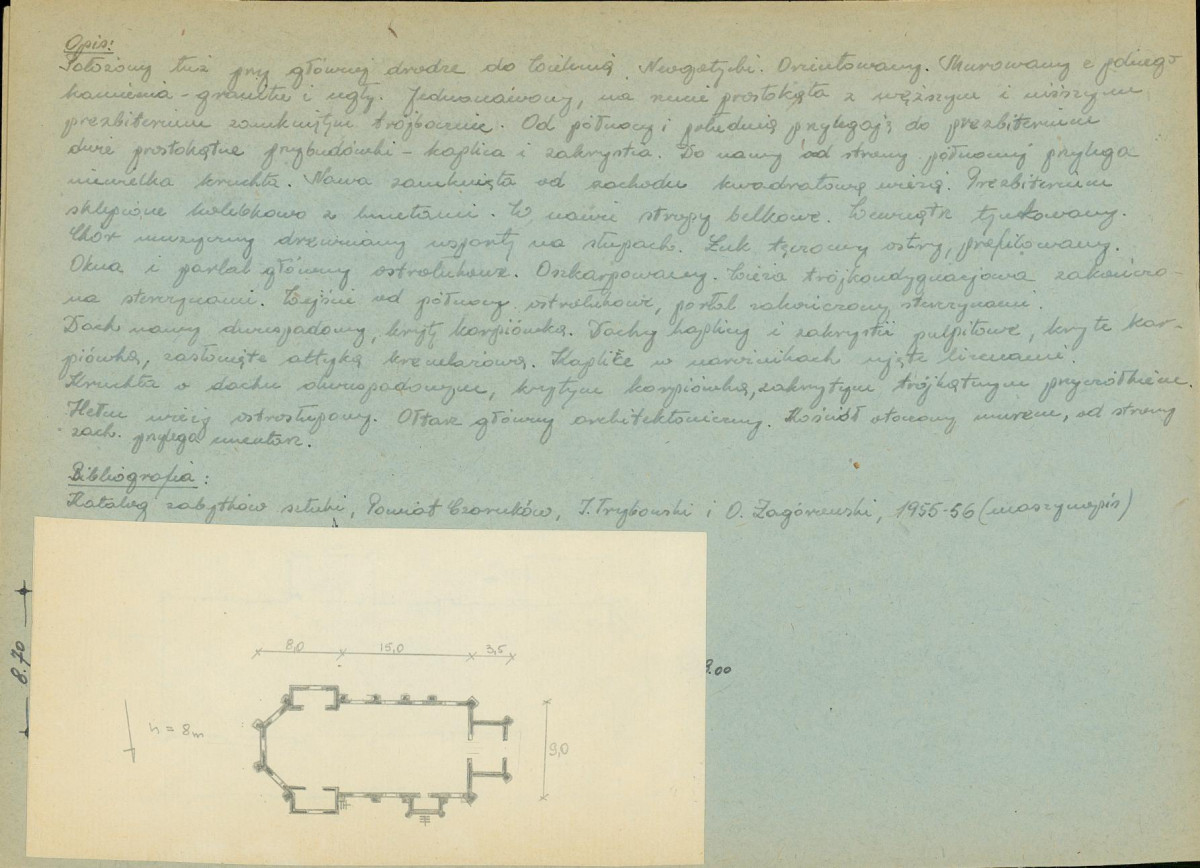 Opis:
Położony tuż przy głównej drodze do Wielenia. Neogotycki. Orientowany. Murowany z polnego
kamienia - granitu i cegły. Jednonawowy, na rzucie prostokąta z węższym i niższym
prezbiterium zamkniętym trójbocznie. Od północy i południa przylegają do prezbiterium
dwie prostokątne przybudówki - kaplica i zakrystia. Do nawy od strony północnej przylega
niewielka kruchta. Nawa zamknięta od zachodu kwadratową wieżą. Prezbiterium
sklepione kolebkowo z lunetami. W nawie stropy belkowe. Wewnątrz tynkowany.
Chór muzyczny drewniany wsparty na słupach. Łuk tęczowy ostry, profilowany.
Okna i portal główny ostrołukowe. Oszkarpowany. Wieża trójkondygnacjowa zakończo-
na sterczynami. Wejście od północy ostrołukowe, portal zakończony sterczynami.
Dach nawy dwuspadowy, kryty karpiówką. Dachy kaplicy i zakrystii pulpitowe, kryte kar-
piówką, zasłonięte attyką krenelażową. Kaplice w narożnikach ujęte lizenami.
Kruchta o dachu dwuspadowym, krytym karpiówką, zakrytym trójkątnym przyczółkiem.
Hełm wieży ostrosłupowy. Ołtarz główny architektoniczny. Kościół otoczony murem, od strony
zach. przylega cmentarz.
Bibliografia:
Katalog zabytków sztuki, Powiat Czarnków, J. Trybowski i O. Zagórowski, 1955-56 (maszynopis)
8.70
8,0 15,0 3,5
9.00
h = 8m
9,0